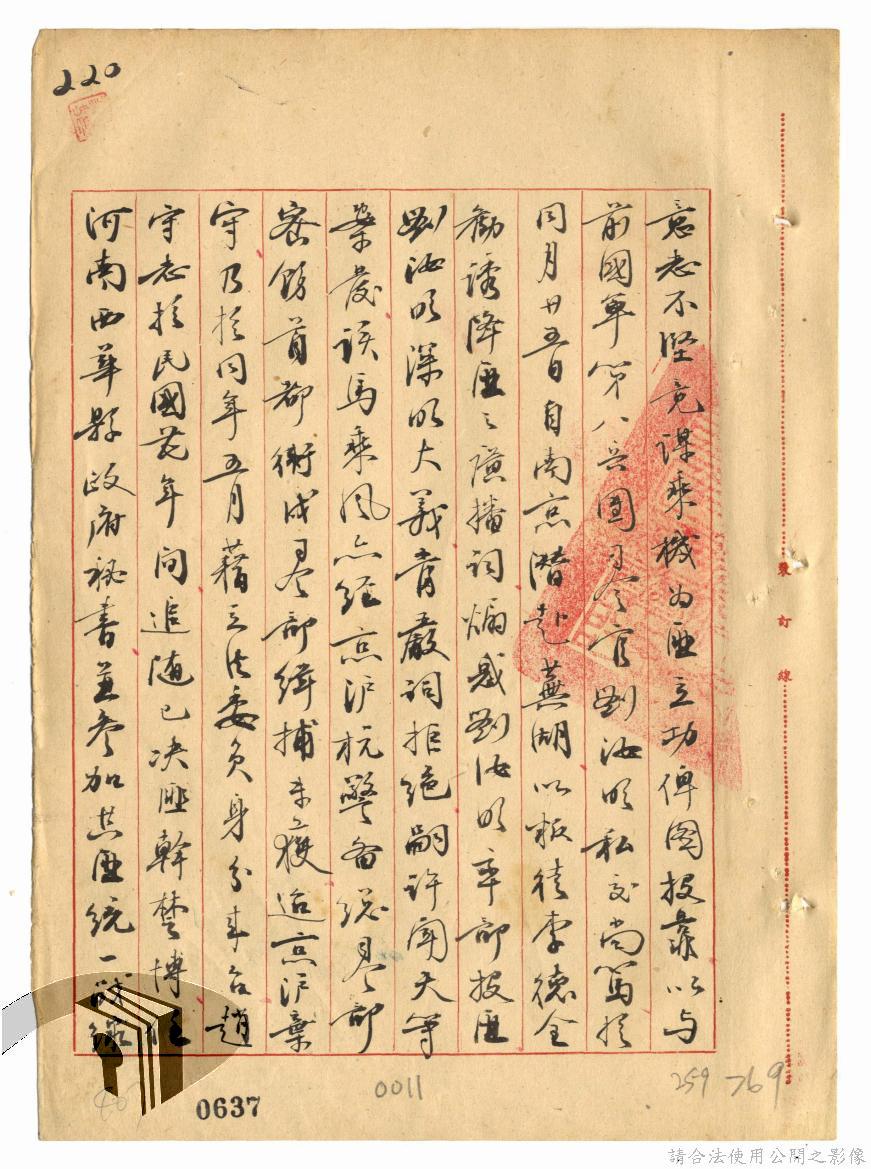 220
意志不堅竟謀乘機為匪立功俾圖投靠以与
前國軍第八兵團司令官劉汝明私交尚篤於
同月廿五日自南京潛赴蕪湖以叛徒李德全
勸誘降匪之廣播詞煽惑劉汝明率部投匪
劉汝明深明大義嚴詞拒絕嗣許聞天等
案發該馬乘風亦經京沪杭警备総司令部
密飭首都衛戍司令部緝捕未獲迨京沪棄
守乃於同年五月藉立法委員身分來台趙
守志於民國年間追随已决匪幹楚博
河南西華縣政府秘書並參加共匪統一戰線
裝訂線
0637
0011
259
769
請合法使用公開之影像